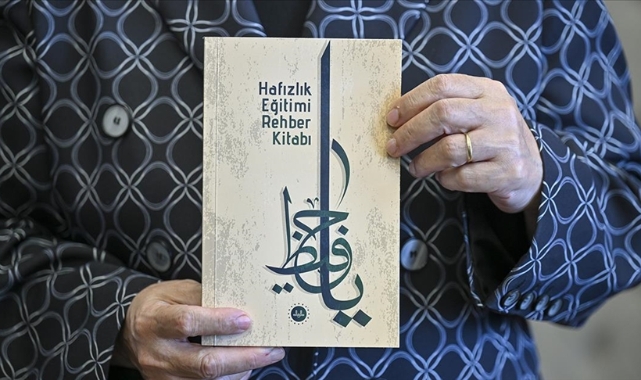 Hafızlık
Eğitimi
Rehber
Kitabı
يا حافظ